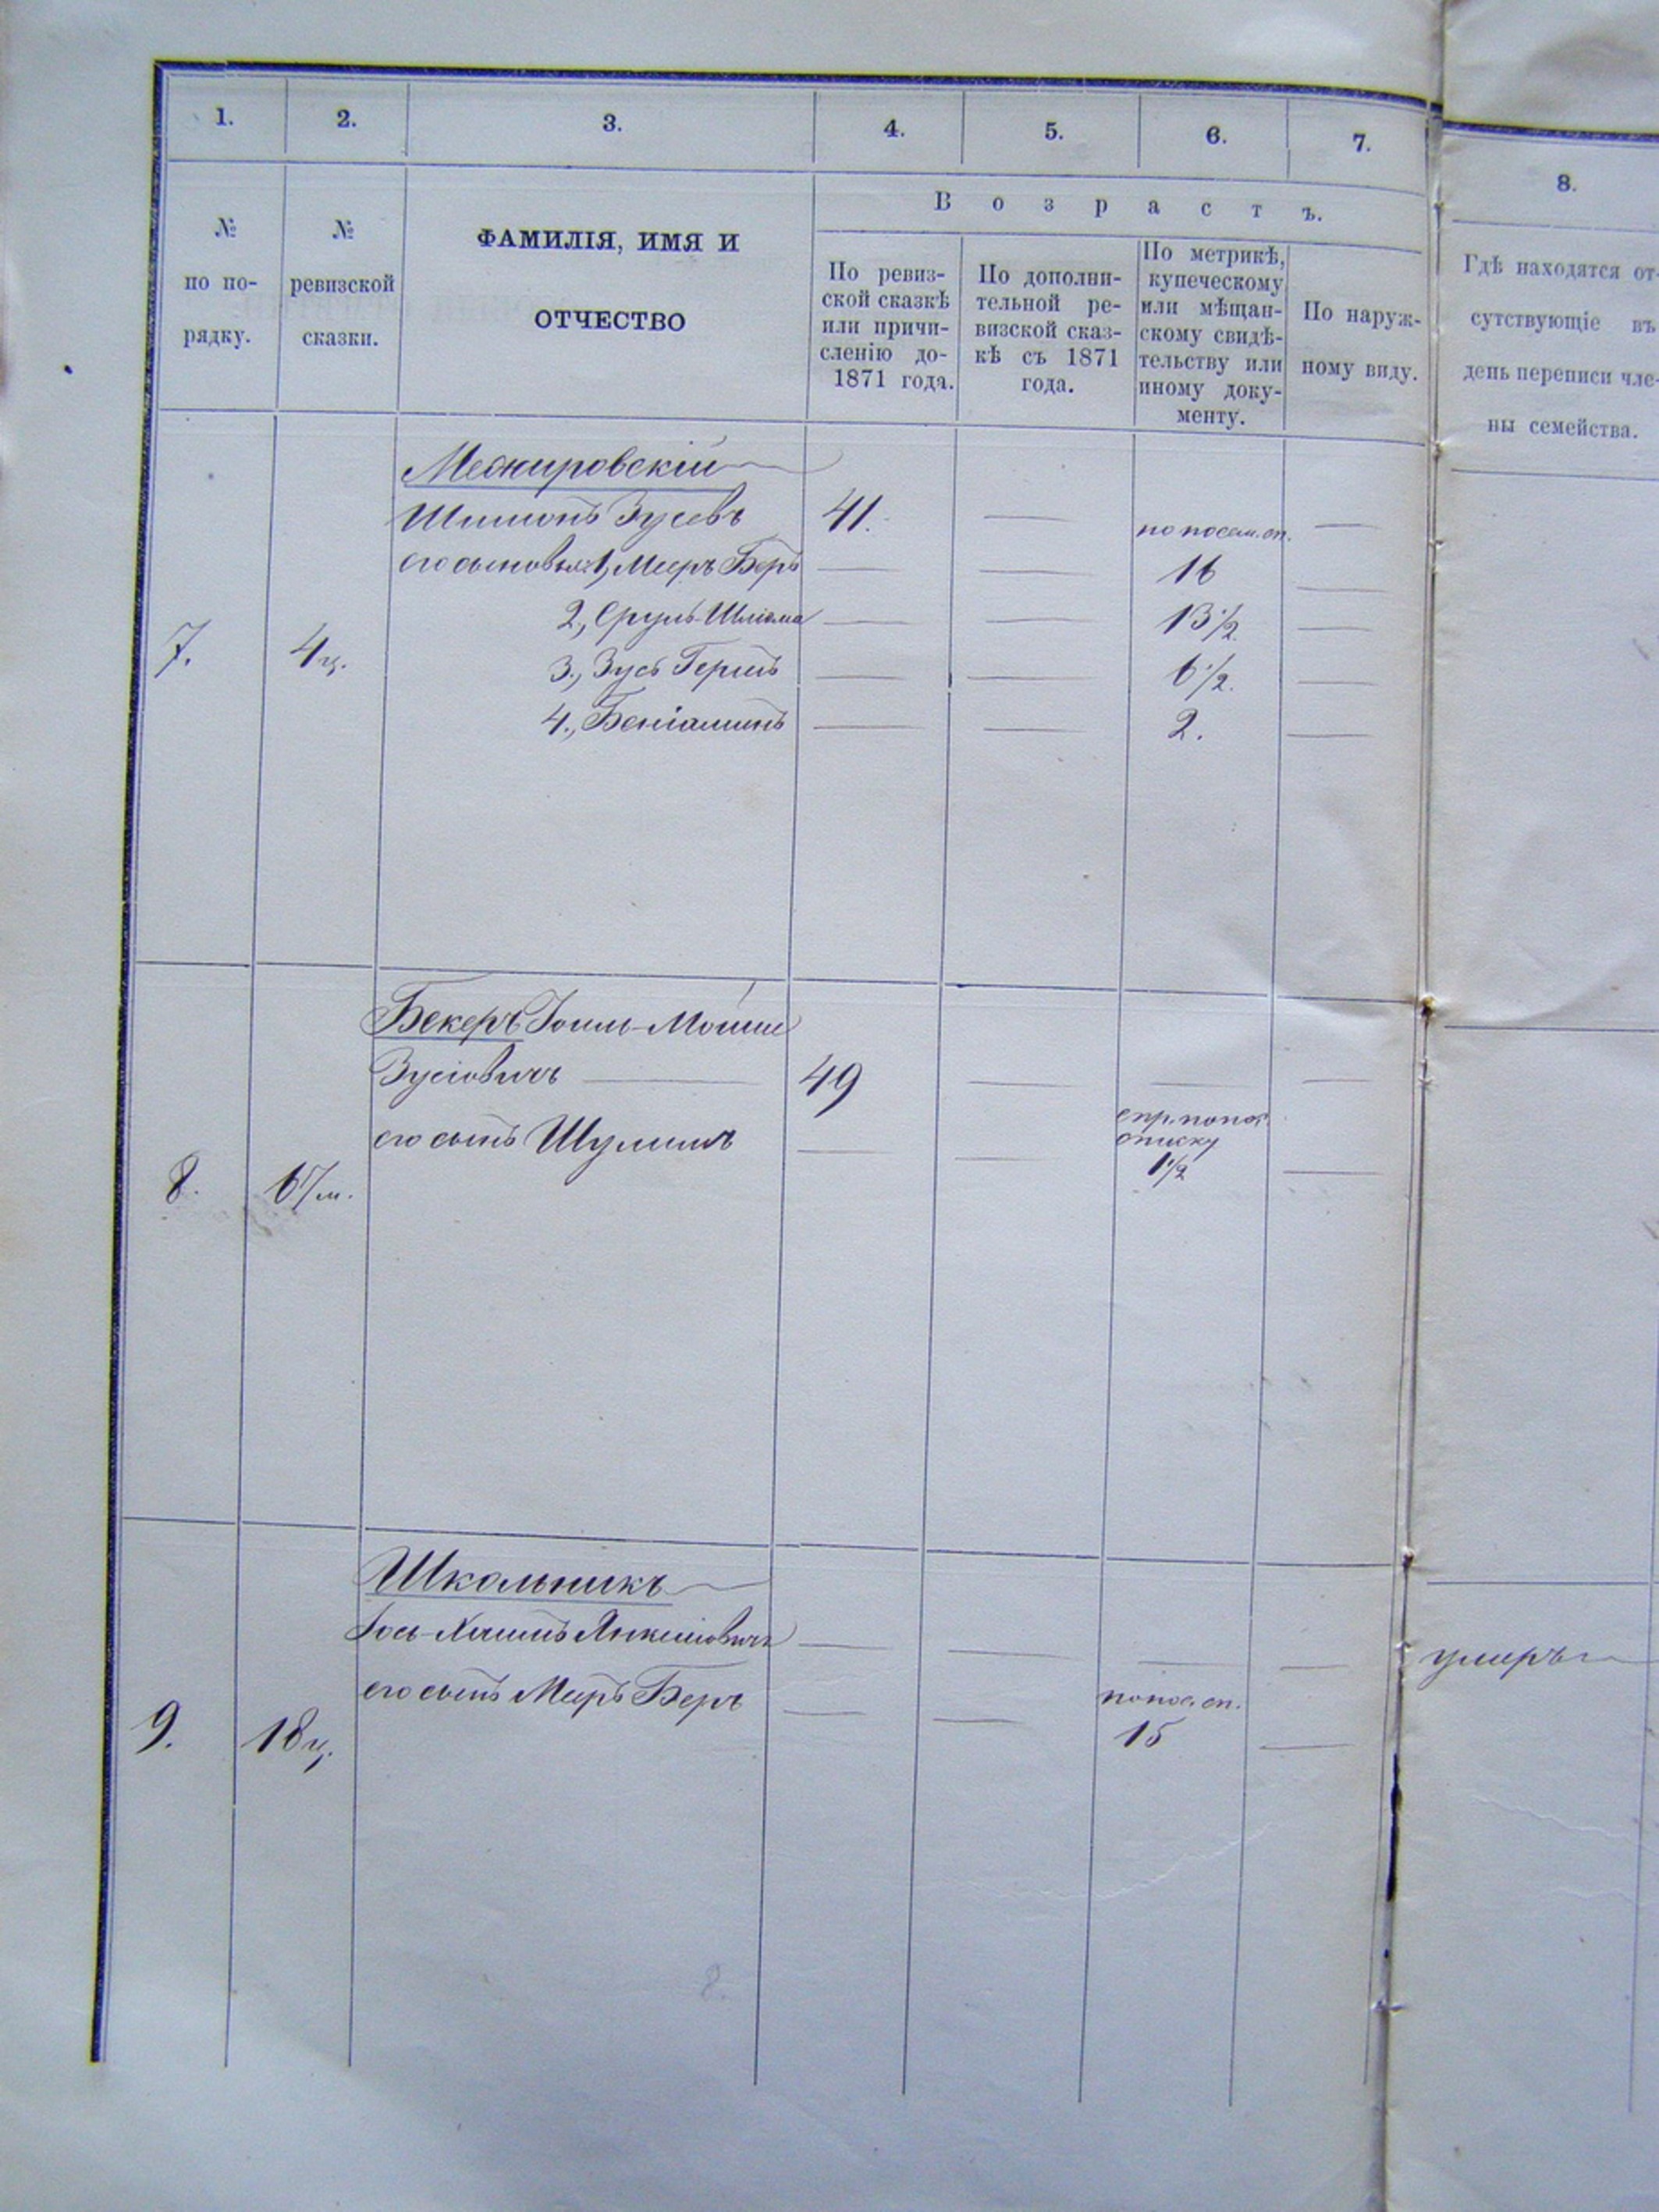 1. 2. 3. 4. 5. 6. 7. 8.
В о з р а с т ъ.
№
по по-
рядку.
№
ревизской
сказки.
ФАМИЛІЯ, ИМЯ И
ОТЧЕСТВО
По ревиз-
ской сказкѣ
или причи-
сленію до-
1871 года.
По дополни-
тельной ре-
визской сказ-
кѣ съ 1871
года.
По метрикѣ,
купеческому
или мѣщан-
скому свидѣ-
тельству или
иному доку-
менту.
По наруж-
ному виду.
Гдѣ находятся от-
сутствующіе въ
день переписи чле-
ны семейства.
Межировскій
Шимонъ Зусевъ 41. — по посем. сп. —
его сыновья: 1, Мееръ Беръ — — 16 —
2, Сруль-Шлiома — — 13 1/2 —
7. 4 ц. 3., Зусь Гершъ — — 6 1/2. —
4., Беніаминъ — — 2. —
Бекеръ Іоиль-Мойше
Зусіовичъ — 49 — — —
его сынъ Шулимъ — — спр. по пос.
списку
1 1/2 —
8. 67/м.
Школьникъ
Іось-Хаимъ Янкеліовичъ — — — — умеръ
его сынъ Меиръ Беръ — — по пос. сп.
9. 18 ц. 15 —
8.